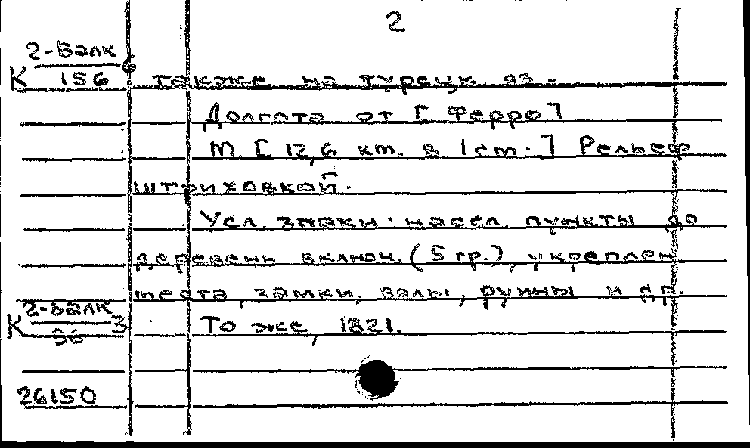 2
2-Балк
К 156
также на турецк. яз.-
Долгота от [Ферро]
М. [12,6 km. в 1cm.] Рельеф
штриховкой.
Усл. знаки: насел. пункты до
деревень включ. (5 гр.), укреплен.
места, замки, валы, руины и др.
2-Балк
К 3
То же, 1821.
26150